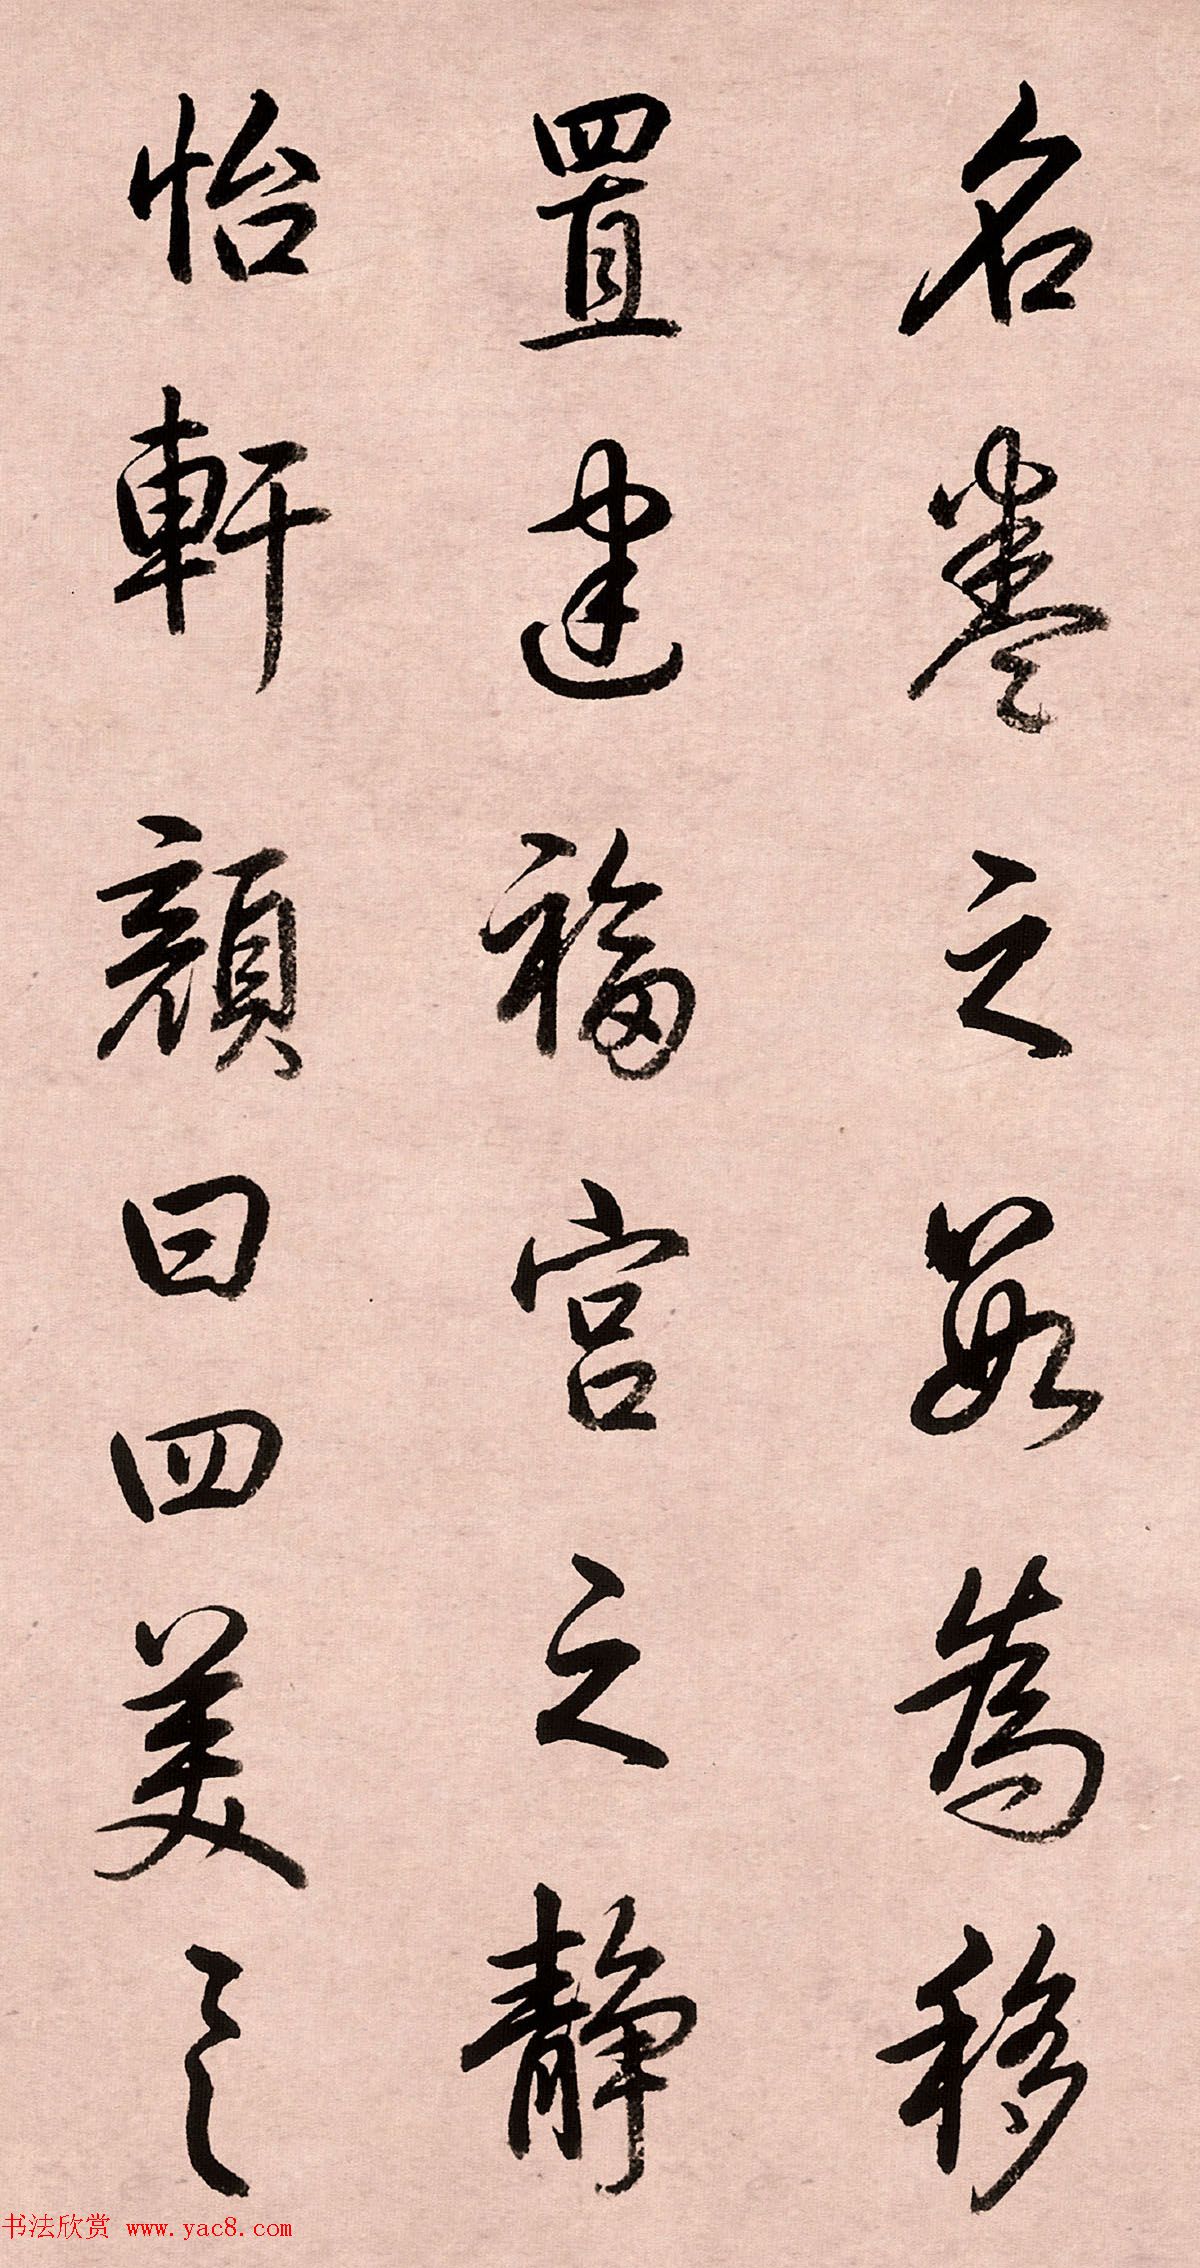 名卷之數為移
置建福宮之静
怡軒顏曰四美之
书法欣赏 www.yac8.com